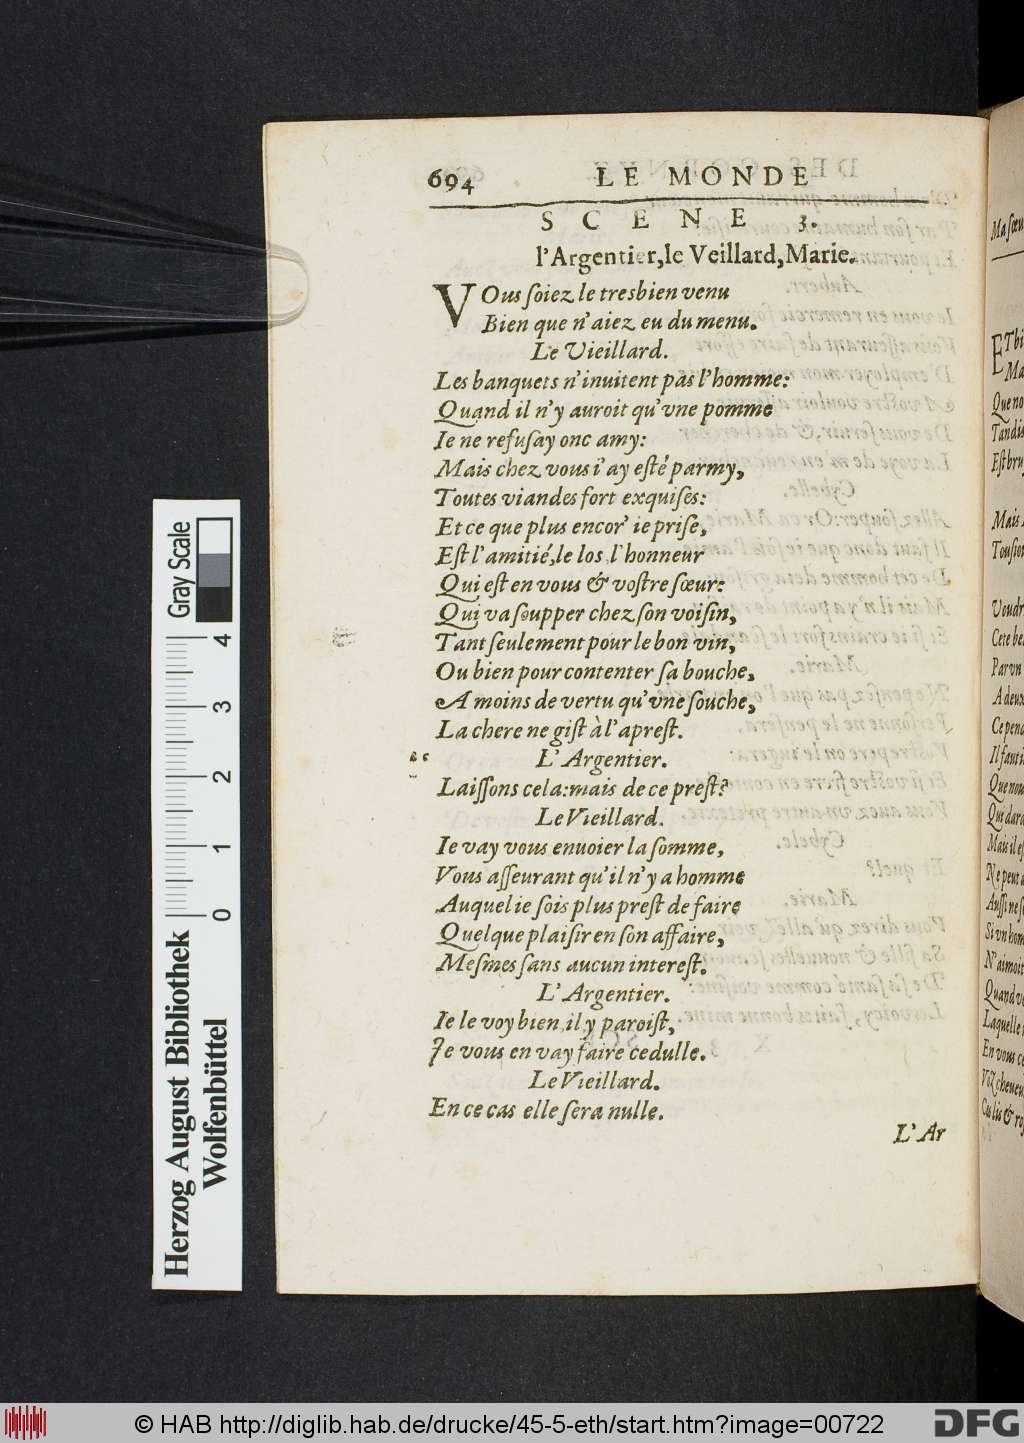 694 LE MONDE
SCENE 3.
l'Argentier, le Veillard, Marie.
VOus ſoiez le tresbien venu
Bien que n'aiez eu du menu.
Le Vieillard.
Les banquets n'inuitent pas l'homme:
Quand il n'y auroit qu'vne pomme
Ie ne refuſay onc amy:
Mais chez vous i'ay eſté parmy,
Toutes viandes fort exquiſes:
Et ce que plus encor' ie priſe,
Eſt l'amitié, le los, l'honneur
Qui eſt en vous & voſtre sœur:
Qui va soupper chez ſon voiſin,
Tant ſeulement pour le bon vin,
Ou bien pour contenter ſa bouche,
A moins de vertu qu'vne ſouche,
La chere ne giſt à l'apreſt.
L'Argentier.
Laiſſons cela: mais de ce preſt?
Le Vieillard.
Ie vay vous enuoier la ſomme,
Vous aſſeurant qu'il n'y a homme
Auquel ie ſois plus preſt de faire
Quelque plaiſir en ſon affaire,
Meſmes ſans aucun intereſt.
L'Argentier.
Ie le voy bien, il y paroiſt,
Je vous en vay faire cedulle.
Le Vieillard.
En ce cas elle ſera nulle.
L'Ar
Ma sœu
ETbi
Ma
Que no
Tandis
Eſt bru
Mais
Touſio
Voudr
Cete be
Par vn
A deux
Ce pend
Il faut
Que nou
Qui dard
Mais il eſ
Ne peut a
Auſſi ne ſ
Si vn hom
N'aimoit
Quand vo
Laquelle
En vous ce
Voz cheueu
Gray Scale
4
3
2
1
0
Herzog August Bibliothek
Wolfenbüttel
© HAB http://diglib.hab.de/drucke/45-5-eth/start.htm?image=00722
DFG